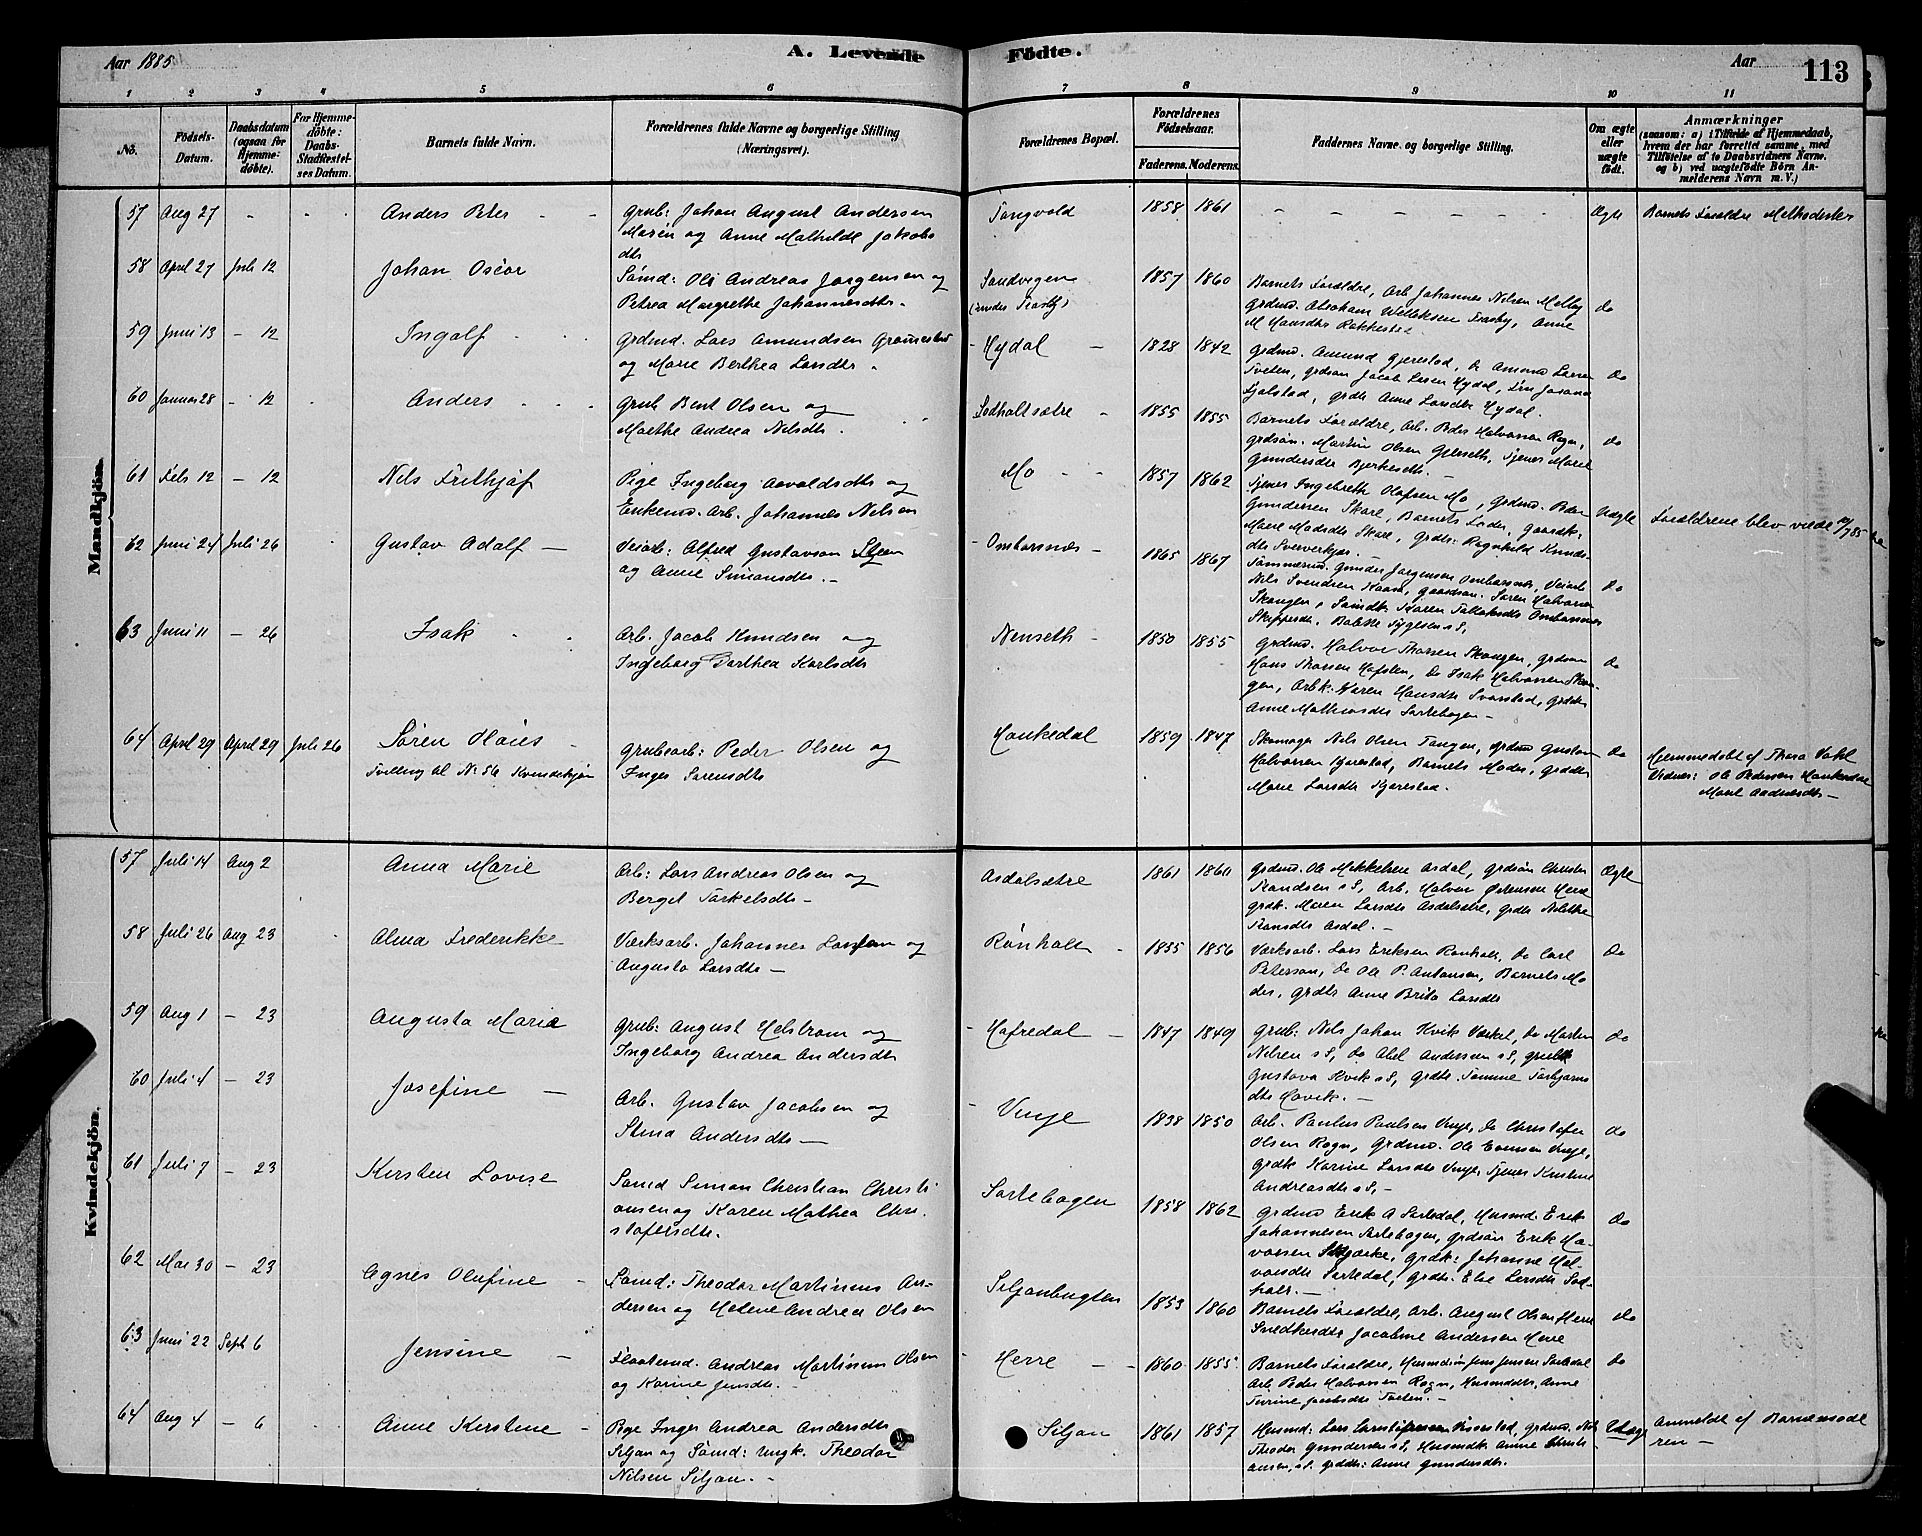 Aar 1885
A. Levende
Födte.
Aar
113
1 2 3 4 5 6 7 8 9 10 11
No.
Födsels-
Datum.
Daabsdatum
(ogsaa for
Hjemme-
döbte).
For Hjemme-
döbte:
Daabs-
Stadfæstel-
ses Datum.
Barnets fulde Navn.
Forældrenes fulde Navne og borgerlige Stilling
(Næringsvei).
Forældrenes Bopæl.
Forældrenes
Födselsaar.
Faderens. Moderens.
Faddernes Navne og borgerlige Stilling.
Om ægte
eller
uægte
födt.
Anmærkninger
(saasom: a) i Tilfælde af Hjemmedaab,
hvem der har forrettet samme, med
Tilföielse af to Daabsvidners Navne,
og b) ved uægtefödte Börn An-
melderens Navn m. V.)
Mandkjön.
57 Aug 27 - - Anders Peter - -
Grub: Johan August Andersen
Maren og Anne Mathilde Jakobs
dtr
Tangvald 1858 1861 - - - - - - - Ægte Barnets Forældre Methodister
58 April 27 Juli 12 Johan Oscar
Sömd: Ole Andreas Jörgensen og
Petrea Margrethe Johannesdtr.
Sandvigen
1857 1860
Barnets Forældre, Arb Johannes Nilsen Melby
Grdmd. Abraham Willeksen Frasby, Anne
M Hansdtr Rakkestre
do
59 Juni 13 - 12 Ingolf
Grdmd. Lars Amundsen
og Marie Berthea Larsdtr.
Hydal - 1828 1842
Grdmd. Amund Gjerstad, do Amund Larsen
Tveten, grdsøn Jacob Larsen Hydal,
grdtr Anne Larsdtr Hydal.
do
60 Januar 28 - 12 Anders
Grub Bent Olsen og
Marthe Andrea Nilsdtr.
1855 1855
Barnets Forældre, Arb. Peder Halvorsen Rogn,
grdsøn. Martin Olsen Tjener Marie
Gundersdtr
do
61 Feb 12 - 12 Nils Frithjof
Pige Ingeborg Aavoldsdtr og
Enkemd. Arb. Johannes Nilsen
Mo - - 1857 1862
Tjener Ingebreth Olafsen Mo, Grdmd. Peder
Gundersen Skare, Barnets Fader, Gaardk.
Marie Madsdtr Skare, Grdtr. Ragnhild Knuds-
dtr
Uægte Forældrene blev viede 12/7 85
62 Juni 24 Juli 26 Gustav Adolf -
Veiarb: Alfred Gustavson
og Anne Simonsdtr. -
Ombarsnæs - 1865 1867
Tømmermd. Gunder Jørgensen Ombarsnes, Veiarb
Nils Svendsen Kaasa, Gaardsøn. Søren Halvorsen
Skougen, Sømdtr. Karen
do
63 Juni 11 - 26 Isak
Arb. Jacob Knudsen og
Ingeborg Dorthea Karlsdtr
Nenseth - 1850 1855
Grdmd. Halvor Thorsen Skougen, Grdsøn
Hans Thorsen Hafsten, do Isak Halvorsen Skou-
gen, Arbk. Karen Hansdtr Svarstad, Grdtr
Anne Mathiasdtr Sortebogen -
do
64 April 29 April 29 Juli 26 Sören Olaves
Tvilling til No 56 Kvindekjøn
Grubearb: Peder Olsen og
Inger Sørensdtr
Hankedal 1859 1847
Skomager Nils Olsen Tangen, Grdmd Gustav
Halvorsen Kjerstad, Barnets Moder, Grdtr
Marie Larsdtr Kjerestad.
do Hjemmedøbt af Thora Vahl
Vidner: Ole Pedersen Hankedal
Maret Andreasdtr -
Kvindekjön.
57 Juli 14 Aug 2 Anna Marie
Arb: Lars Andreas Olsen og
Berget Torkelsdtr -
Asdalsætre 1861 1860
Grdmd. Ole Mikkelsen Asdal, Grdsøn Christen
Frandsen s S, Arb. Halvor Ørensen Herre
Grdk. Maren Larsdtr Asdalsætre, Grdtr
Fransdtr Asdal. -
Ægte
58 Juli 26 Aug 23 Alma Frederikke
Værksarb. Johannes Larsen og
Augusta Larsdtr -
Rønholt - 1855 1856
Værksarb. Lars Eriksen Rønholt, do Carl
Peterson, do Ole P. Antonsen, Barnets Mo
der, Grdtr Anne Brita Larsdtr
do
59 Aug 1 - 23 Augusta Maria
Grub: August Helstrom og
Ingeborg Andrea Andersdtr
Hafredal - 1847 1849
Grub: Nils Johan Kvik Værket, do Morten
Nilsen s S, do Abel Andersen s S, Grubk
Gustava Kvik s S, Grdtr. Tomine Torbjørns
dtr Hovik. -
do
60 Juli 4 - 23 Josefine -
Arb. Gustav Jacobsen og
Stina Andersdtr -
Vinje 1838 1850
Arb. Paulus Paulsen Vinje, do Christofer
Olsen Rogn, Grdmd. Ole Evensen Vinje,
Grdk Karine Larsdtr Vinje, Tjener Kirstine
Andreasdtr s S, -
do
61 Juli 7 - 23 Kirsten Lovise
Sømd Simon Christian Christi
ansen og Karen Mathea Chri-
stofersdtr.
Sortebogen 1858 1862
Grdmd Erik A Sortedal, Husmd. Erik
Johannesen Sortebogen, Grdsøn Erik Ha-
vorsen Grdk: Johanne Hal-
vorsdtr Sortedal, Grdtr. Else Larsdtr Sod-
holt. -
do
62 Mai 30 - 23 Agnes Olufine -
Sømd: Theodor Martinius An-
dersen og Helene Andrea Olsen
Siljanbugten 1853 1860
Barnets Forældre, Arb. August Olsen Herre
Snedkerdtr Jacobine Andersen Herre
do
63 Juni 22 Sept 6 Jensine -
Flaatemd. Andreas Martinius Olsen
og Karine Jensdtr. -
Herre - - 1860 1855
Barnets Forældre, Husmdsøn Jens Jensen Sortedal
Arb. Peder Halvorsen Rogn, Husmdtr, Anne
Turine Jacobsdtr Tveten. -
do
64 Aug 4 - 6 Anne Kirstine -
Pige Inger Andrea Andersdtr
Siljan og Sømd: Ungk. Theodor
Nilsen Siljan. -
Siljan 1861 1857
Husmd: Lars Christofersen Grdmd. Nils
Theodor Gundersen s S, Husmdk Anne Christi
ansen, s S. Grdtr: Anne Gundersdtr.
Uægte Anmeldt af Barnemode
ren -